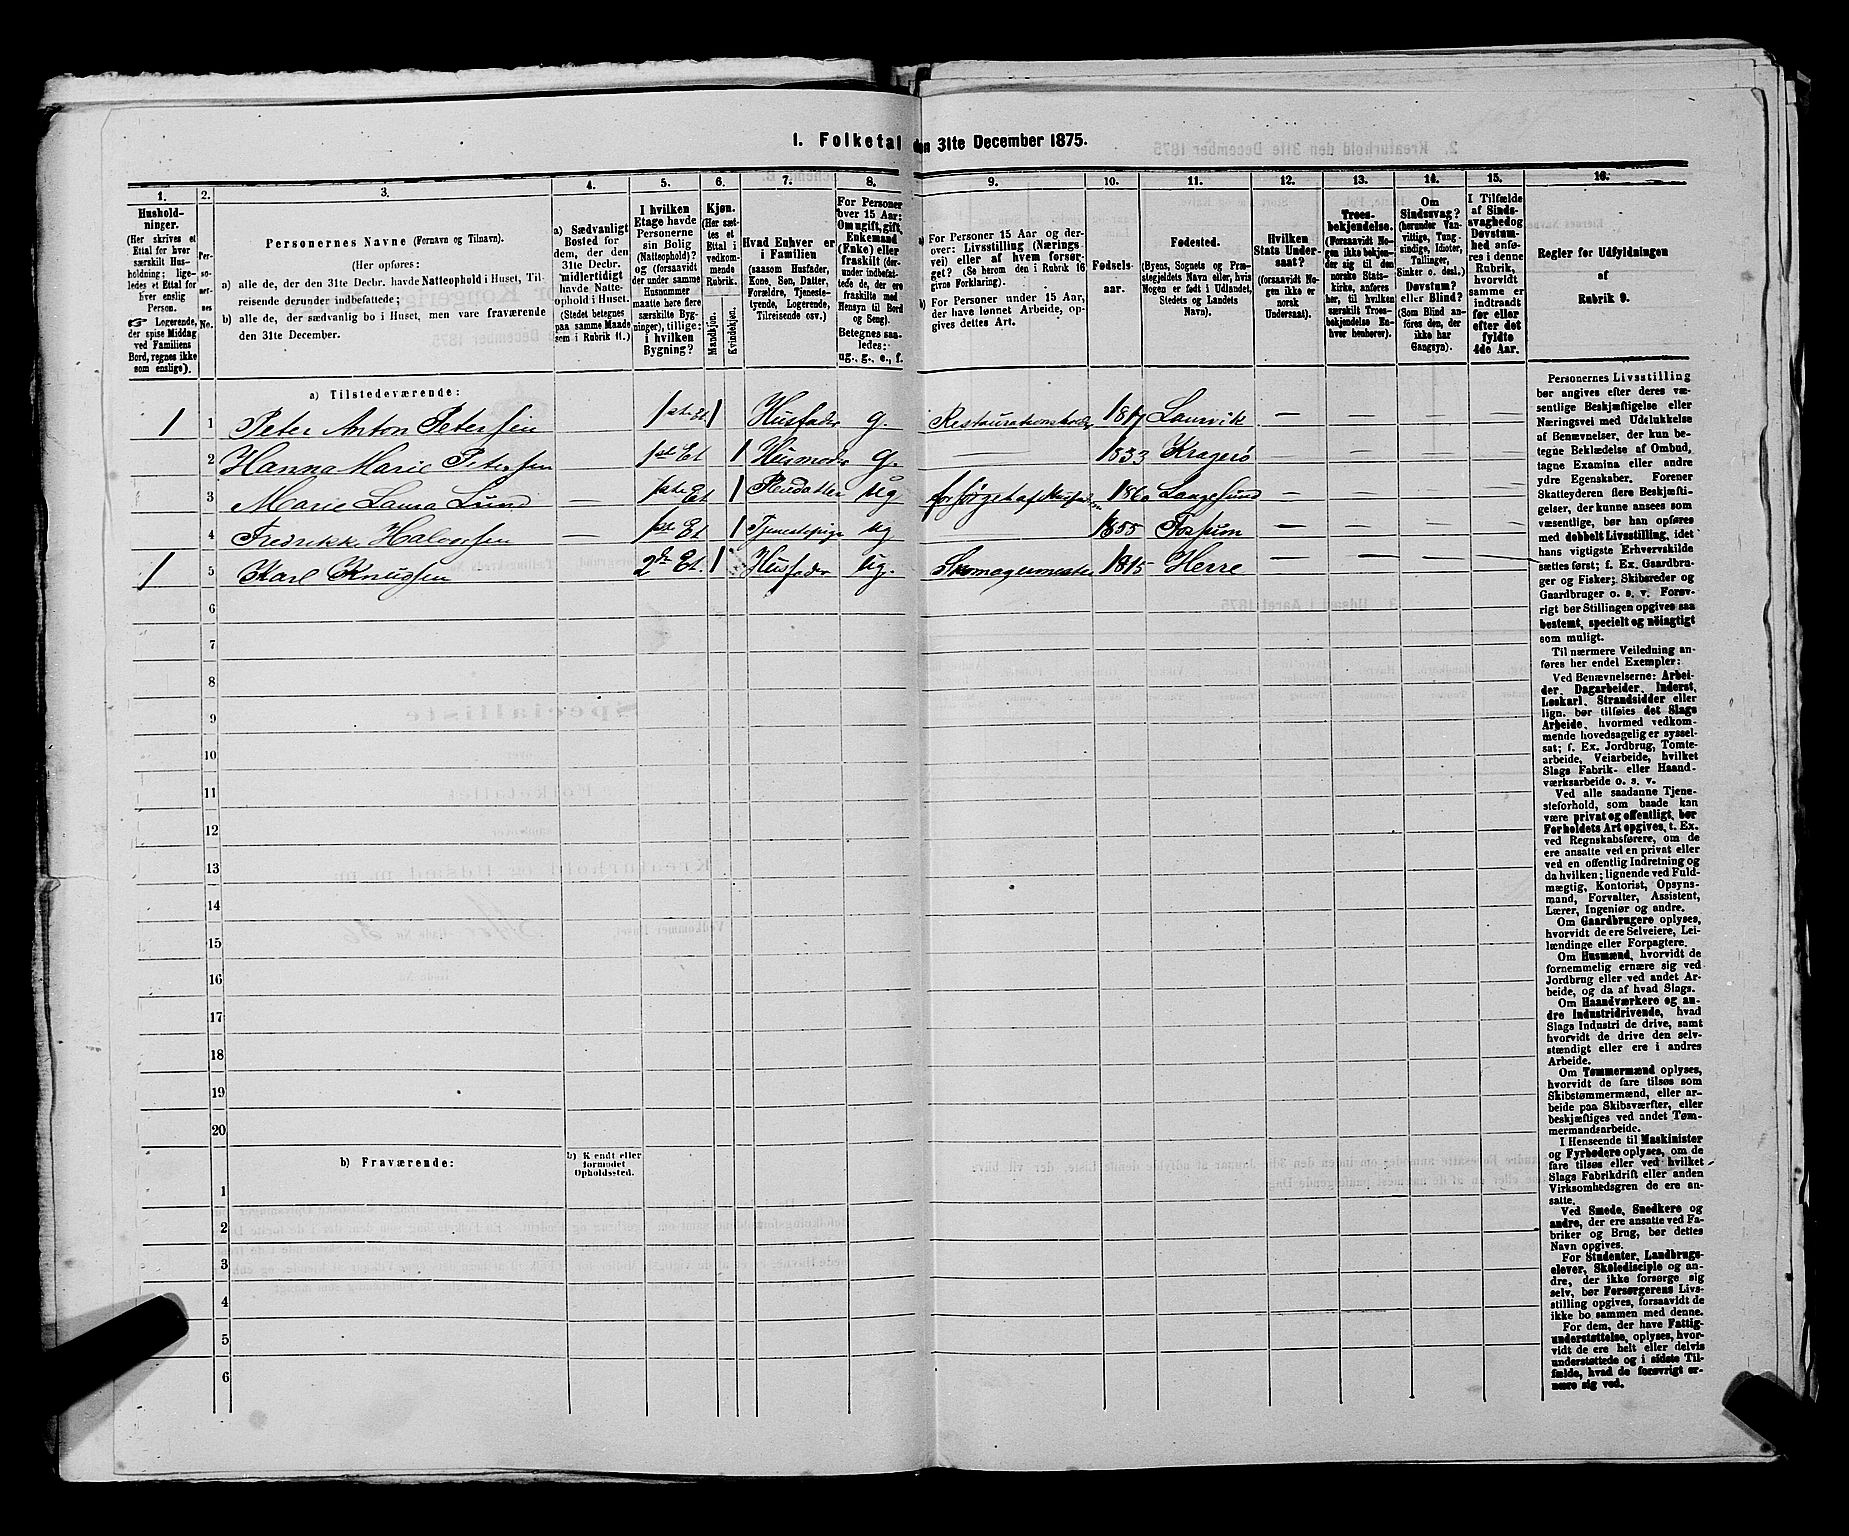 1. Folketal den 31te December 1875.
1. 2. 3. 4. 5. 6. 7. 8. 9. 10. 11. 12. 13. 14. 15. 16.
Hushold-
ninger.
(Her skrives et
Ettal for hver
særskilt Hus-
holdning; lige-
ledes et Ettal for
hver enslig
Person.
☞ Logerende,
der spise Middag
ved Familiens
Bord, regnes ikke
som enslige).
Per-
so-
ner-
nes
No.
Personernes Navne (Fornavn og Tilnavn).
(Her opføres:
a) alle de, der den 31te Decbr. havde Natteophold i Huset, Til-
reisende derunder indbefattede;
b) alle de, der sædvanlig bo i Huset, men vare fraværende
den 31te December.
a) Sædvanligt
Bosted for
dem, der den
31te Decbr.
midlertidigt
havde Natte-
ophold i Huset.
(Stedet betegnes
paa samme Maade
som i Rubrik 11.)
I hvilken
Etage havde
Personerne
sin Bolig
(Natteophold)?
og (forsaavidt
der under samme
Husnummer
maatte høre flere
særskilte Byg-
ninger), tillige:
i hvilken
Bygning?
Kjøn.
(Her sæt-
tes et
Ettal i
vedkom-
mende
Rubrik.
Mandkjøn.
Kvindekjøn.
Hvad Enhver er
i Familien
(saasom Husfader,
Kone, Søn, Datter,
Forældre, Tjeneste-
tyende, Logerende,
Tilreisende osv.)
For Personer
over 15 Aar:
Om ugift, gift,
Enkemand
(Enke) eller
fraskilt (der-
under indbefat-
tede de, der ere
fraskilte med
Hensyn til Bord
og Seng).
Betegnes saa-
ledes:
ug., g., e., f.
a) For Personer 15 Aar og der-
over: Livsstilling (Nærings-
vei) eller af hvem forsør-
get? (Se herom den i Rubrik 16
givne Forklaring).
b) For Personer under 15 Aar,
der have lønnet Arbeide, op-
gives dettes Art.
Fødsels-
aar.
Fødested.
(Byens, Sognets og Præ-
stegjeldets Navn eller, hvis
Nogen er født i Udlandet,
Stedets og Landets
Navn).
Hvilken
Stats Under-
saat?
(forsaavidt No-
gen ikke er
norsk
Undersaat).
Troes-
bekjendelse.
(Forsaavidt No-
gen ikke bekjen-
der sig til den
norske Stats-
kirke, anføres
her, til hvilken
særskilt Troes-
bekjendelse En-
hver henhører).
Om
Sindssvag?
(herunder Van-
vittige, Tung-
sindige, Idioter,
Tullinger,
Sinker o. desl.)
Døvstum?
eller Blind?
(Som Blind an-
føres den, der
ikke har
Gangsyn).
I Tilfælde
af Sinds-
svaghed og
Døvstum-
hed anfø-
res i denne
Rubrik,
hvorvidt
samme er
indtraadt
før eller
efter det
fyldte
4de Aar.
Regler for Udfyldningen
af
Rubrik 9.
a) Tilstedeværende:
1 1 Peter Anton Petersen 1ste Et 1 Husfader g. Restaurationsholder 1817 Laurvik — — —
2 Hanna Marie Petersen 1ste Et 1 Husmoder g. 1833 Kragerø — — —
3 Marie Laura Lund — 1ste Et 1 Pleiedatter ug forsørget af Husfaderen 1860 Langesund — — —
4 Fredrikke Halvorsen — 1ste Et 1 Tjenestepige ug 1855 Fossum — — —
1 5 Karl Knudsen 2den Et. 1 Husfader ug. Skomagermester 1815 Herre — — — —
6
7
8
9
10
11
12
13
14
15
16
17
18
19
20
b) Fraværende:
b) Kjendt eller
formodet
Opholdssted.
1
2
3
4
5
6
Personernes Livsstilling
bør angives efter deres væ-
sentlige Beskjæftigelse eller
Næringsvei med Udelukkelse
af Benævnelser, der kun be-
tegne Beklædelse af Ombud,
tagne Examina eller andre
ydre Egenskaber. Forener
Skatteyderen flere Beskjæfti-
gelser, der kunne ansees som
væsentlige, bør han opføres
med dobbelt Livsstilling, idet
hans vigtigste Erhvervskilde
sættes først; f. Ex. Gaardbru-
ger og Fisker; Skibsreder og
Gaardbruger o. s. v. Forøv-
rigt bør Stillingen opgives saa
bestemt, specielt og nøiagtigt
som muligt.
Til nærmere Veiledning an-
føres her endel Exempler:
Ved Benævnelserne: Arbei-
der, Dagarbeider, Inderst,
Løskarl, Strandsidder eller
lign. bør tilføies det Slags
Arbeide, hvormed vedkom-
mende hovedsagelig er syssel-
sat; f. Ex. Jordbrug, Tomte-
arbeide, Veiarbeide, hvilket
Slags Fabrik- eller Haand-
værksarbeide o. s. v.
Ved alle saadanne Tjene-
steforhold, som baade kan
være privat og offentligt, bør
Forholdets Art opgives, t. Ex.
ved Regnskabsførere, om de
ere ansatte ved en privat eller
ved en offentlig Indretning og
da hvilken; lignende ved Fuld-
mægtig, Kontorist, Opsyns-
mand, Forvalter, Assistent,
Lærer, Ingeniør og andre.
Om Gaardbrugere oplyses,
hvorvidt de ere Selveiere, Lei-
lændinge eller Forpagtere.
Om Husmænd, hvorvidt de
fornemmelig ernære sig ved
Jordbrug eller ved andet Ar-
beide, og da af hvad Slags.
Om Haandværkere og an-
dre Industridrivende, hvad
Slags Industri de drive, samt
hvorvidt de drive den selv-
stændigt eller ere i andres
Arbeide.
Om Tømmermænd oplyses,
hvorvidt de fare tilsøs som
Skibstømmermænd, eller ar-
beide paa Skibsværfter, eller
beskjæftiges ved andet Tøm-
mermandsarbeide.
I Henseende til Maskinister
og Fyrbødere oplyses, om de
fare tilsøs eller ved hvilket
Slags Fabrikdrift eller anden
Virksomhedsgren de ere an-
satte.
Ved Smede, Snedkere og
andre, der ere ansatte ved Fa-
briker og Brug, bør dettes
Navn opgives.
For Studenter, Landbrugs-
elever, Skoledisciple og an-
dre, der ikke forsørge sig
selv, bør Forsørgerens Livs-
stilling opgives, forsaavidt de
ikke bo sammen med denne.
For dem, der have Fattig-
understøttelse, oplyses, hvor-
vidt de ere helt eller delvis
understøttede og i sidste Til-
fælde, hvad de forøvrigt er-
nære sig ved.